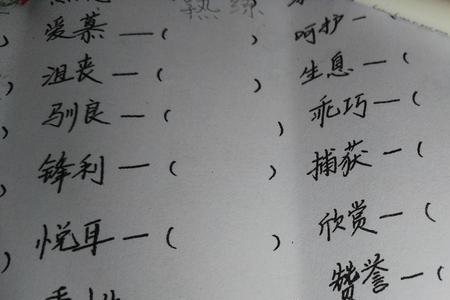 熟练
爱慕—（ ） 呵护—（
沮丧—（ ） 生息—（
驯良—（ ） 乖巧—（
锋利—（ ） 捕获—（
悦耳—（ ） 欣赏—（
赞誉—（